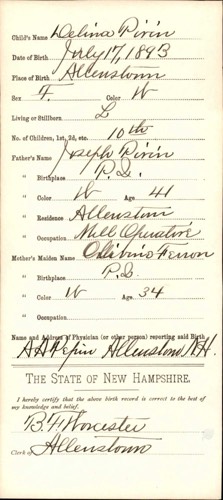 Child's Name Delina Pirin
Date of Birth July 17, 1893
Place of Birth Allenstown
Sex F. Color W
Living or Stillborn L
No. of Children, 1st, 2d, etc. 10th
Father's Name Joseph Pirin
" Birthplace P.Q.
" Color W Age 41
" Residence Allenstown
" Occupation Mill Operative
Mother's Maiden Name Ferron
" Birthplace P.Q.
" Color W Age 34
" Occupation
Name and Address of Physician (or other person) reporting said Birth
A A Pepin Allenstown, N.H.
THE STATE OF NEW HAMPSHIRE.
I hereby certify that the above birth record is correct to the best of
my knowledge and belief.
Worcester
Clerk of Allenstown